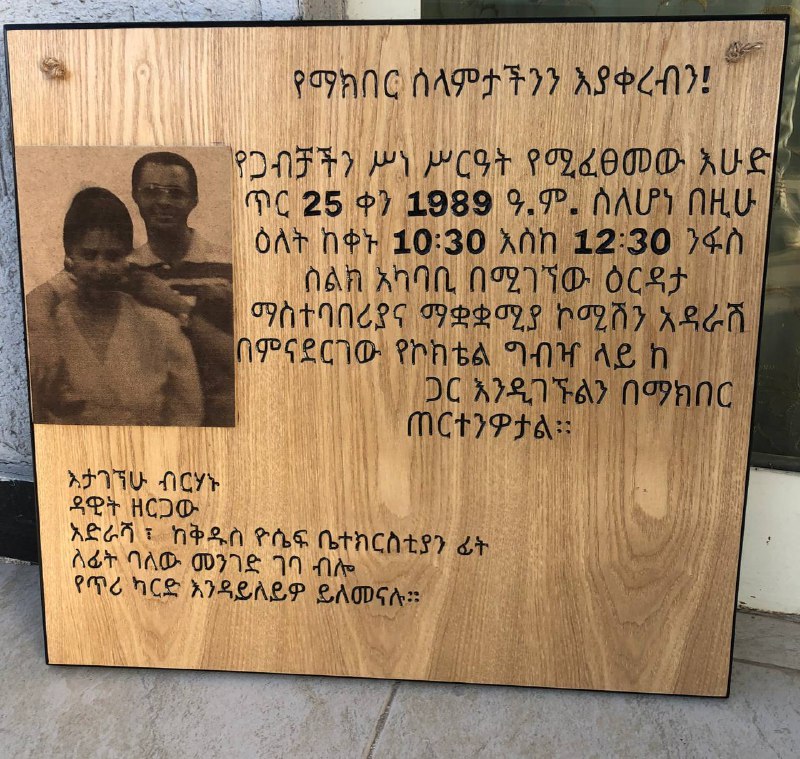 የማክበር ሰላምታችንን እያቀረብን!
የጋብቻችን ሥነ ሥርዓት የሚፈፀመው እሁድ
ጥር 25 ቀን 1989 ዓ.ም. ስለሆነ በዚሁ
ዕለት ከቀኑ 10:30 እሰከ 12:30 ንፋስ
ስልክ አካባቢ በሚገኘው ዕርዳታ
ማስተባበሪያና ማቋቋሚያ ኮሚሽን አዳራሽ
በምናደርገው የኮክቴል ግብዣ ላይ ከ
ጋር እንዲገኙልን በማክበር
ጠርተንዎታል።
እታገኘሁ ብርሃኑ
ዳዊት ዘርጋው
አድራሻ ፣ ከቅዱስ ዮሴፍ ቤተክርስቲያን ፊት
ለፊት ባለው መንገድ ገባ ብሎ
የጥሪ ካርድ እንዳይለይዎ ይለመናሉ።